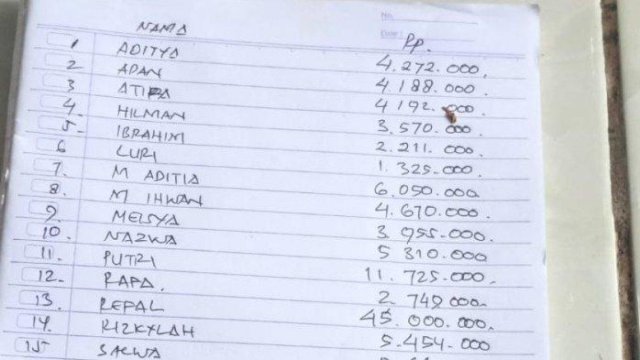 No.
Date:
NAMA Rp.
1 ADITYA 4.272.000.
2 APAN 4.188.000
3 4.192.000
4. HILMAN 3.570.000
5. IBRAHIM 2.211.000
6 LURI 1.325.000
7. M ADITIA 6.050.000
8. M IHWAN 4.670.000.
9. MELSYA 3.955.000.
10. NAZWA 5 310.000
11. PUTRI 11.725.000
12. RAPA. 2.749.000.
13. REPAL 45.000.000
14. RIZKYLAH 5.454.000
15 SALWA